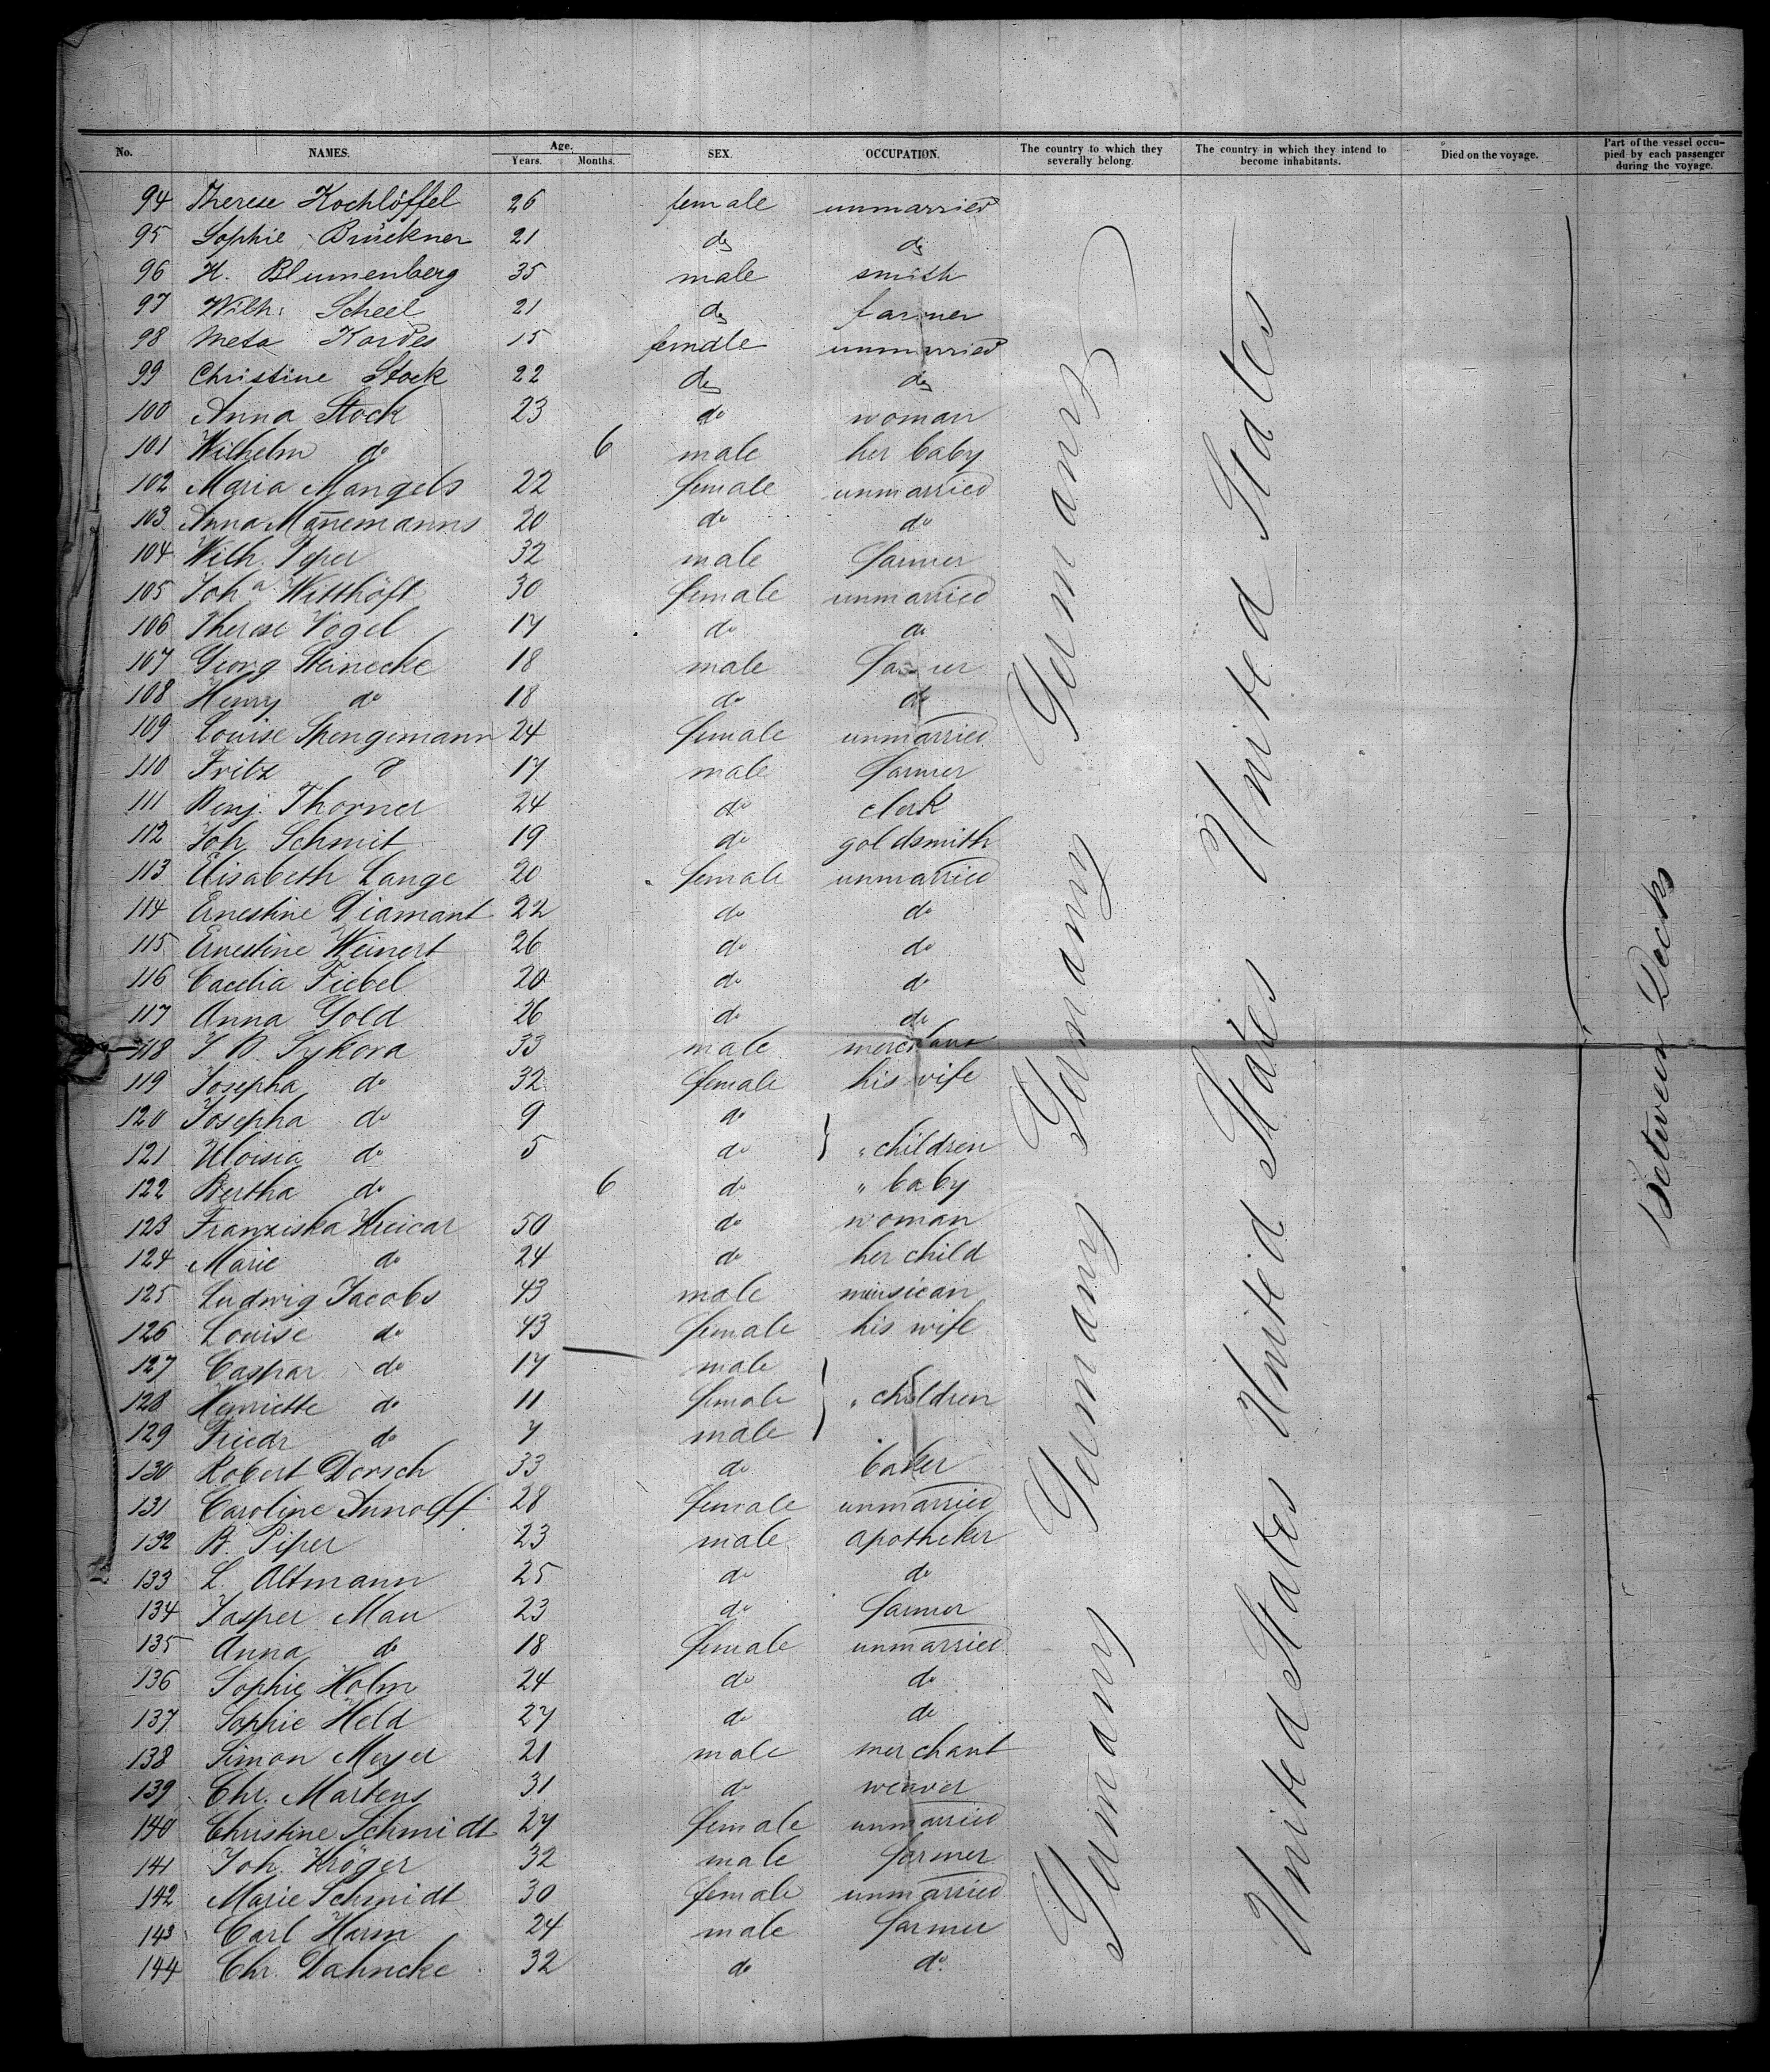 No. NAMES. Age. Years. Months. SEX. OCCUPATION. The country to which they severally belong. The country in which they intend to become inhabitants. Died on the voyage. Part of the vessel occupied by each passenger during the voyage.
94 Therese Kochlöffel 26 female unmarried
95 Sophie Brückner 21 do do
96 H. Blumenberg 35 male smith
97 Wilh: Scheel 21 do farmer
98 Meta Kordes 15 female unmarried
99 Christine Stock 22 do do
100 Anna Stock 23 do woman
101 Wilhelm do 6 male her baby
102 Maria Mangels 22 female unmarried
103 Anna Mañemanns 20 do do
104 Wilh. Piper 32 male farmer
105 Joha Witthöft 30 female unmarried
106 Therese Vogel 17 do do
107 Georg Steinecke 18 male farmer
108 Henry do 18 do do
109 Louise Spengemann 24 female unmarried
110 Fritz do 17 male farmer
111 Benj. Thorner 24 do clerk
112 Joh. Schmit 19 do goldsmith
113 Elisabeth Lange 20 female unmarried
114 Ernestine Diamant 22 do do
115 Ernestine Weinert 26 do do
116 Caecilia Fiebel 20 do do
117 Anna Gold 26 do do
118 Sykora 33 male merchant
119 Josepha do 32 female his wife
120 Josepha do 9 do
121 Aloisia do 5 do " children
122 Bertha do 6 do " baby
123 Franziska Kreicar 50 do woman
124 Marie do 24 do her child
125 Ludwig Jacobs 43 male musican
126 Louise do 43 female his wife
127 Caspar do 17 male
128 Henriette do 11 female " children
129 Friedr do 7 male
130 Robert Dorsch 33 do baker
131 Caroline Annolff 28 female unmarried
132 B. Piper 23 male apotheker
133 L. Altmann 25 do do
134 Jasper Mau 23 do farmer
135 Anna do 18 female unmarried
136 Sophie Holm 24 do do
137 Sophie Held 27 do do
138 Simon Meyer 21 male merchant
139 Chr. Martens 31 do weaver
140 Christine Schmidt 27 female unmarried
141 Joh. Kröger 32 male farmer
142 Marie Schmidt 30 female unmarried
143 Carl Harm 24 male farmer
144 Chr. Dahncke 32 do do
Germany Germany Germany Germany
United States United States United States
Between Decks